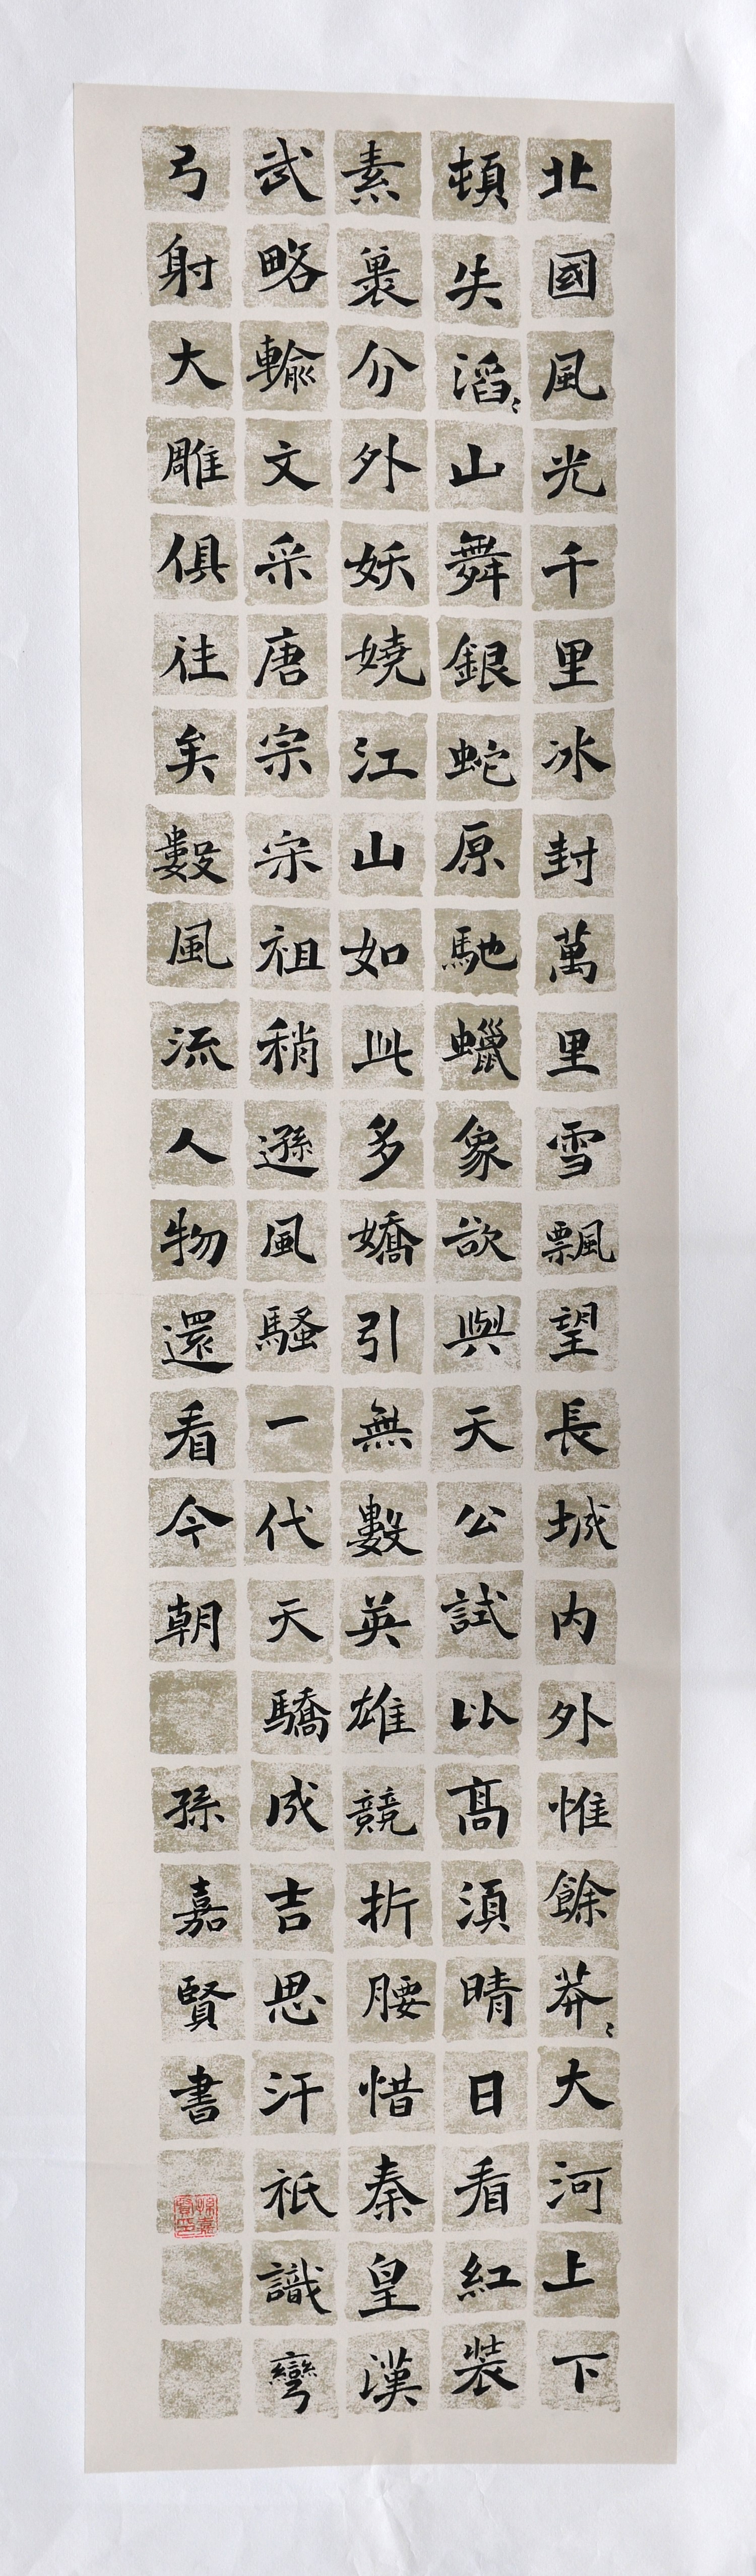 北國風光千里冰封萬里雪飄望長城内外惟餘莽〻大河上下
頓失滔〻山舞銀蛇原馳蠟象欲與天公試以高須晴日看紅裝
素裹分外妖嬈江山如此多嬌引無數英雄競折腰惜秦皇漢
武略輸文采唐宗宋祖稍遜風騷一代天驕成吉思汗祇識彎
弓射大雕俱往矣數風流人物還看今朝 孫嘉賢書
孫嘉賢印